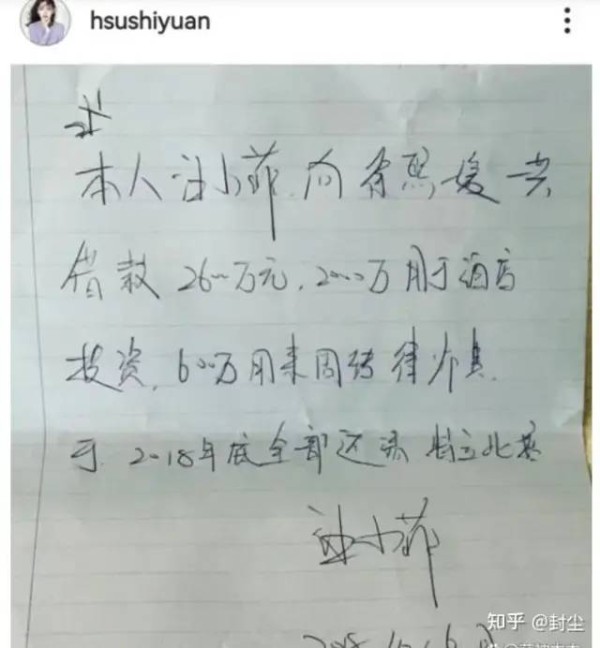 hsushiyuan
本人汪小菲，向徐熙媛共
借款2600万元，2000万用于酒店
投资，600万用来周转
于2018年底全部还清 特立此据
汪小菲
知乎 @封尘